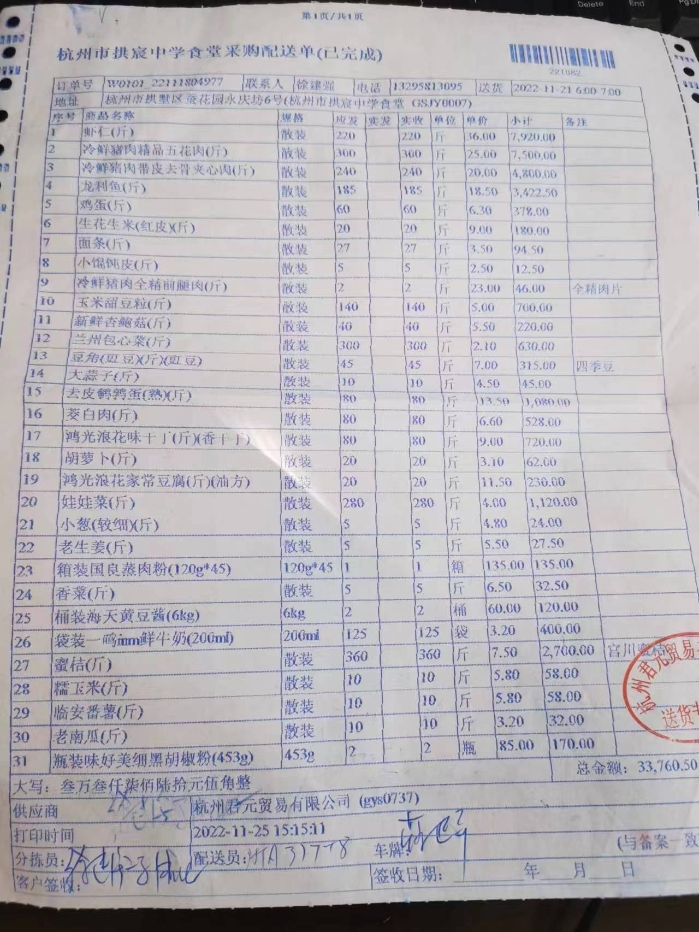 第1页/共1页
杭州市拱宸中学食堂采购配送单(已完成)
22T082
订单号 W0101_22111804977 联系人 徐建强 电话 13295813095 送货 2022-11-21 6:00-7:00
地址 杭州市拱墅区茶花园永庆坊6号(杭州市拱宸中学食堂 GSJY0007)
序号 商品名称 规格 应发 实发 实收 单位 单价 小计 备注
1 虾仁(斤) 散装 220 220 斤 36.00 7,920.00
2 冷鲜猪肉精品五花肉(斤) 散装 300 300 斤 25.00 7,500.00
3 冷鲜猪肉带皮去骨夹心肉(斤) 散装 240 240 斤 20.00 4,800.00
4 龙利鱼(斤) 散装 185 185 斤 18.50 3,422.50
5 鸡蛋(斤) 散装 60 60 斤 6.30 378.00
6 生花生米(红皮)(斤) 散装 20 20 斤 9.00 180.00
7 面条(斤) 散装 27 27 斤 3.50 94.50
8 小馄饨皮(斤) 散装 5 5 斤 2.50 12.50
9 冷鲜猪肉全精前腿肉(斤) 散装 2 2 斤 23.00 46.00 全精肉片
10 玉米甜豆粒(斤) 散装 140 140 斤 5.00 700.00
11 新鲜杏鲍菇(斤) 散装 40 40 斤 5.50 220.00
12 兰州包心菜(斤) 散装 300 300 斤 2.10 630.00
13 豆角(豇豆)(斤)(豇豆) 散装 45 45 斤 7.00 315.00 四季豆
14 大蒜子(斤) 散装 10 10 斤 4.50 45.00
15 去皮鹌鹑蛋(熟)(斤) 散装 80 80 斤 13.50 1,080.00
16 茭白肉(斤) 散装 80 80 斤 6.60 528.00
17 鸿光浪花味十丁(斤)(香干丁) 散装 80 80 斤 9.00 720.00
18 胡萝卜(斤) 散装 20 20 斤 3.10 62.00
19 鸿光浪花家常豆腐(斤)(油方) 散装 20 20 斤 11.50 230.00
20 娃娃菜(斤) 散装 280 280 斤 4.00 1,120.00
21 小葱(较细)(斤) 散装 5 5 斤 4.80 24.00
22 老生姜(斤) 散装 5 5 斤 5.50 27.50
23 箱装国良蒸肉粉(120g*45) 120g*45 1 1 箱 135.00 135.00
24 香菜(斤) 散装 5 5 斤 6.50 32.50
25 桶装海天黄豆酱(6kg) 6kg 2 2 桶 60.00 120.00
26 袋装一鸣mm鲜牛奶(200ml) 200ml 125 125 袋 3.20 400.00
27 蜜桔(斤) 散装 360 360 斤 7.50 2,700.00 宫川蜜桔
28 糯玉米(斤) 散装 10 10 斤 5.80 58.00
29 临安番薯(斤) 散装 10 10 斤 5.80 58.00
30 老南瓜(斤) 散装 10 10 斤 3.20 32.00
31 瓶装味好美细黑胡椒粉(453g) 453g 2 2 瓶 85.00 170.00
杭州君元贸易
送货专
大写：叁万叁仟柒佰陆拾元伍角整 总金额：33,760.50
供应商 杭州君元贸易有限公司 (gys0737)
打印时间 2022-11-25 15:15:11
分拣员： 配送员： 车牌： (与备案一致
客户签收： 签收日期： 年 月 日